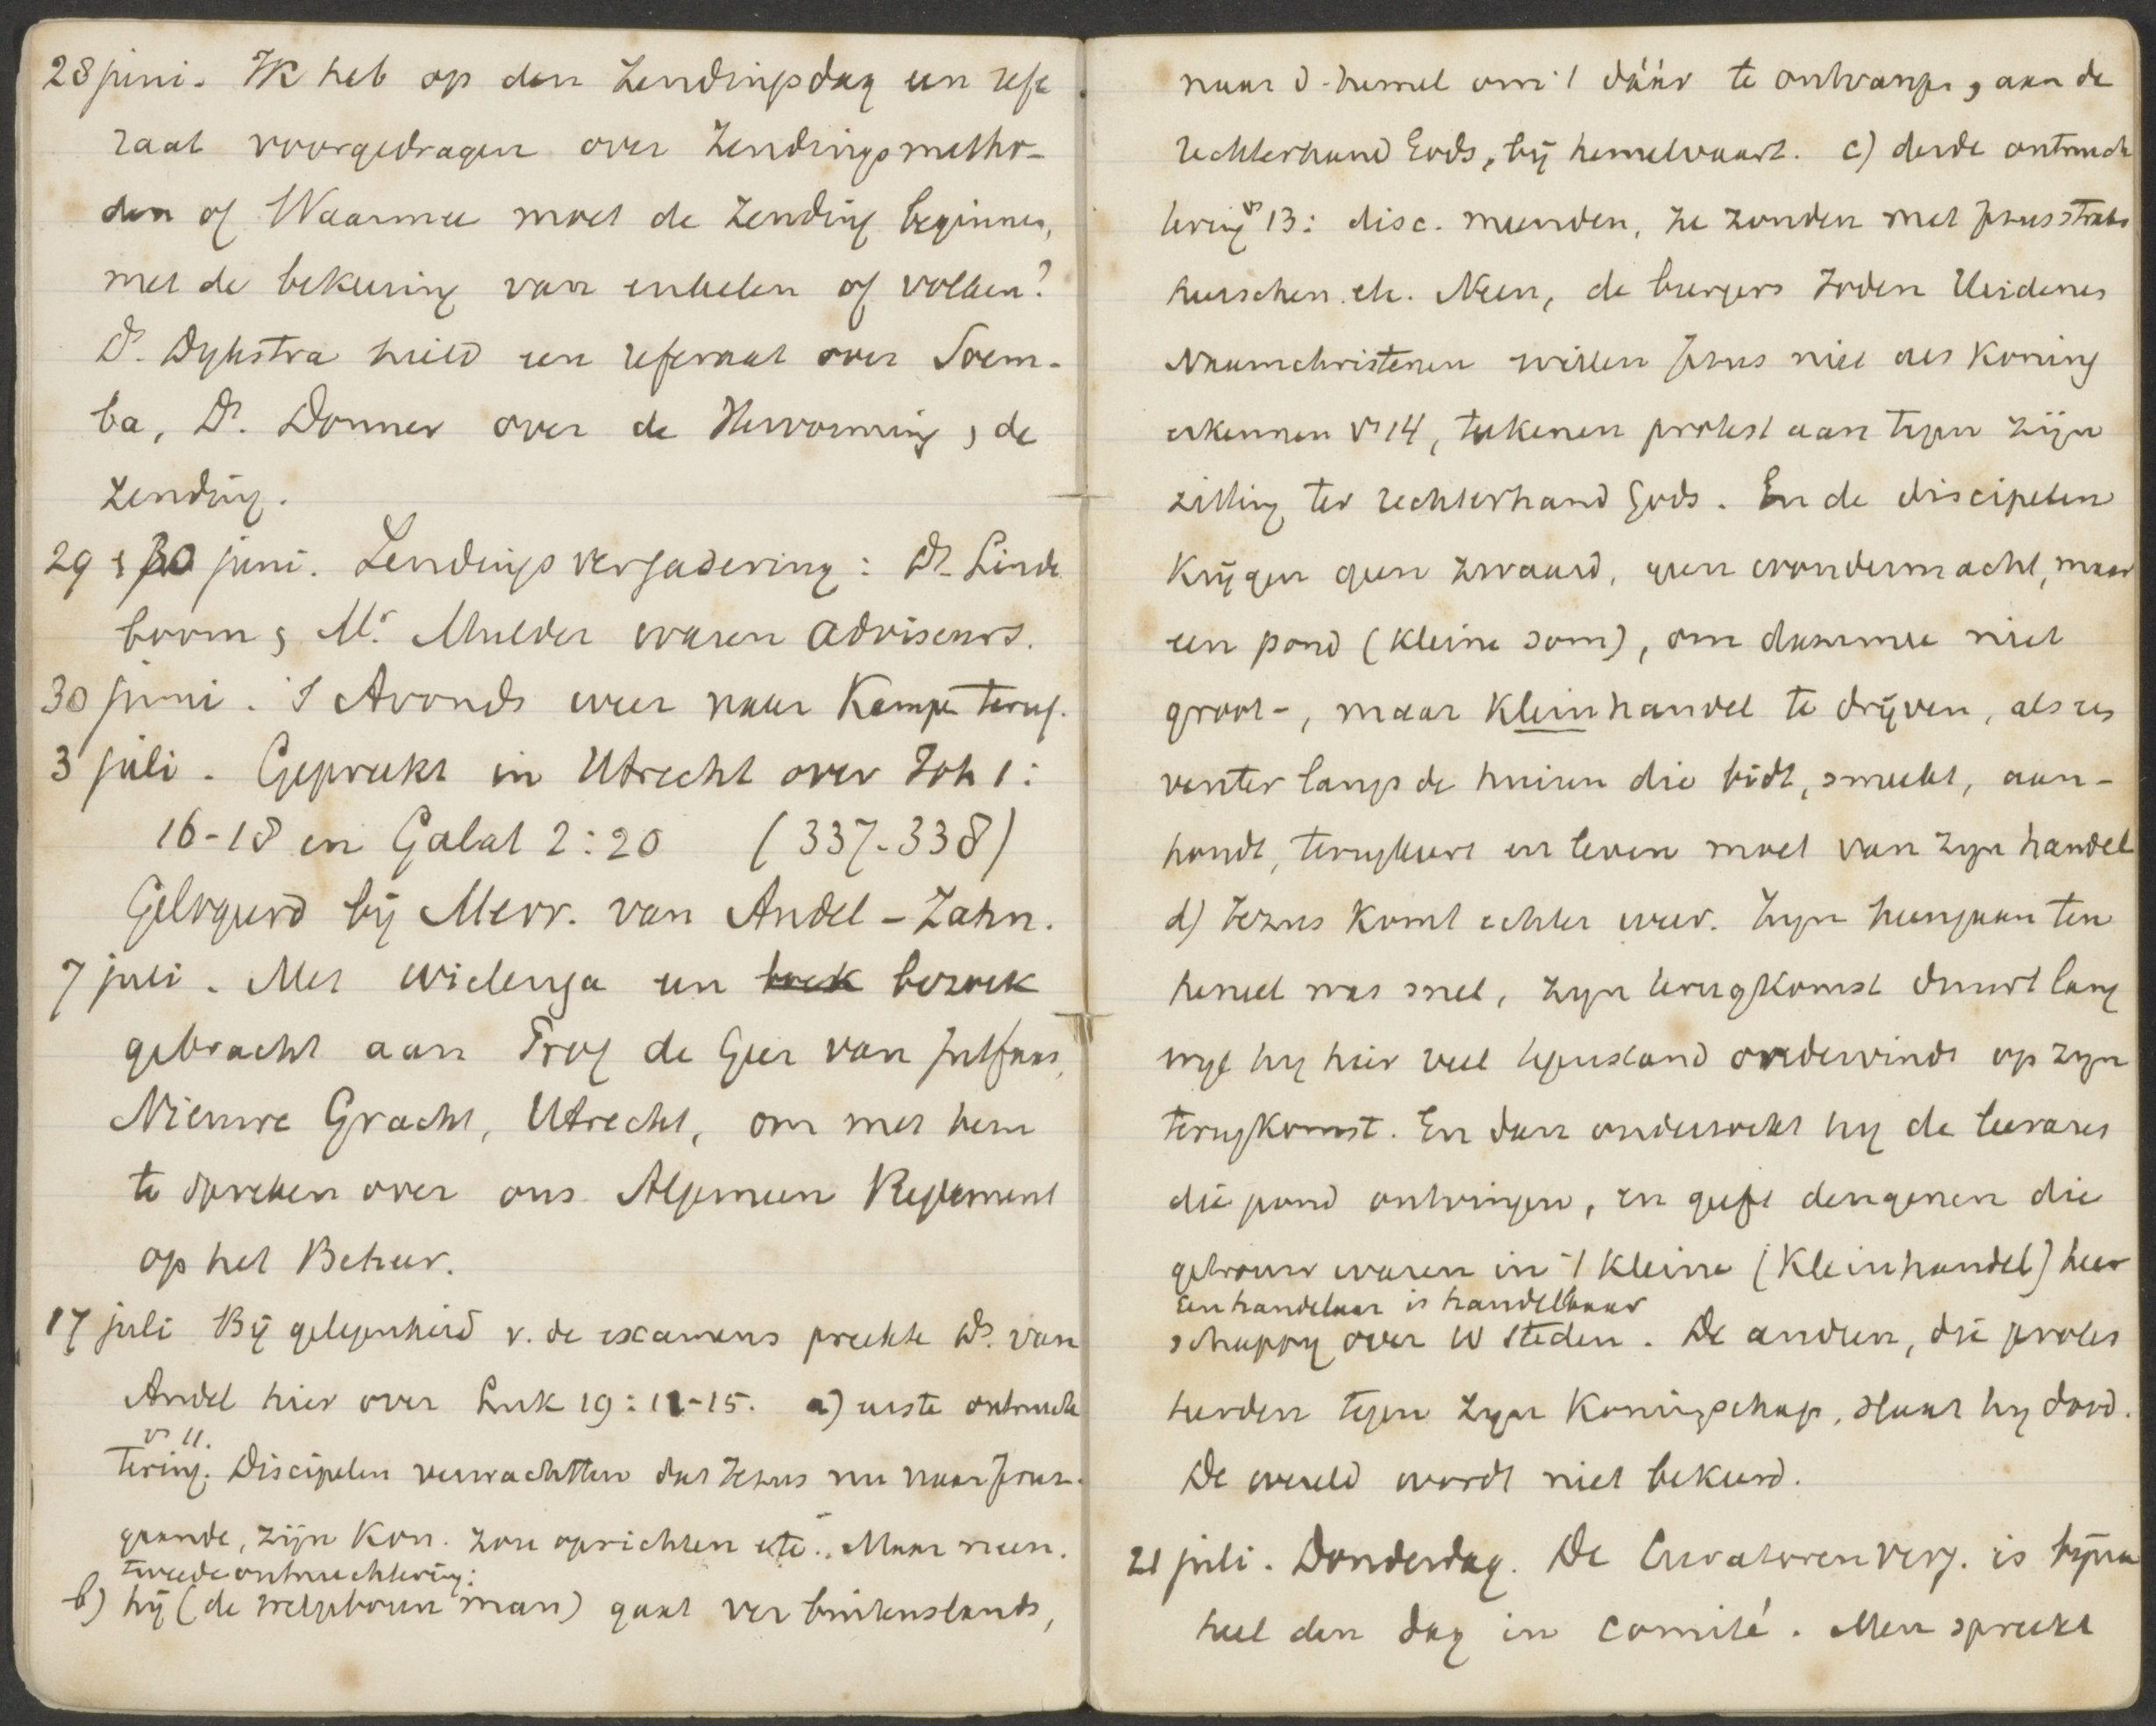 28 juni. Ik heb op den Zendingsdag een refe
raat voorgedragen over Zendingsmetho-
den of Waarmee moet de Zending beginnen,
met de bekeering van enkelen of volken?
Ds. Dijkstra hield een referaat over Soem-
ba, Ds. Donner over de Hervorming & de
Zending.
29 & 30 juni. Zendingsvergadering: Ds. Linde
boom & Mr. Mulder waren adviseurs.
30 juni. 's Avonds weer naar Kampen terug.
3 juli. Gepreekt in Utrecht over Joh 1:
16-18 en Galat 2:20 (337-338)
Gelogeerd bij Mevr. van Andel-Zahn.
7 juli. Met Wielenga een boek bezoek
gebracht aan Prof de Geer van Jutfaas,
Nieuwe Gracht, Utrecht, om met hem
te spreken over ons Algemeen Reglement
op het Beheer.
17 juli Bij gelegenheid v. de examens preekte Ds. van
Andel hier over Luk 19:11-15. a) eerste ontnuch
vs 11.
tering. Discipelen verwachtten dat Jezus nu naar Jeruz.
gaande, zijn Kon. zou oprichten etc. Maar neen.
tweede ontnuchtering:
b) hij (de welgeboren man) gaat ver buitenslands,
naar d. hemel om 't dáár te ontvangen, aan de
rechterhand Gods, bij hemelvaart. c) derde ontnuch
tering vs 13: disc. meenden, ze zouden met Jezus straks
heerschen etc. Neen, de burgers Joden Heidenen
Naamchristenen willen Jezus niet als Koning
erkennen vs 14, teekenen protest aan tegen zijn
zitting ter rechterhand Gods. En de discipelen
krijgen geen zwaard, geen wondermacht, maar
een pond (kleine som), om daarmee niet
groot-, maar kleinhandel te drijven, als een
venter langs de huizen die bidt, smeekt, aan-
houdt, terugkeert en leven moet van zijn handel
d) Jezus komt echter weer. Zijn heengaan ten
hemel was snel, zijn terugkomst duurt lang
wijl hij hier veel tegenstand ondervindt op zijn
terugkomst. En dan onderzoekt hij de leeraars
die pond ontvingen, en geeft dengenen die
getrouw waren in 't kleine (kleinhandel) heer
een handelaar is handelbaar
schappij over 10 steden. De anderen, die protes
teerden tegen zijn Koningschap, slaat hij dood.
De wereld wordt niet bekeerd.
21 juli. Donderdag. De Curatorenverg. is bijna
heel den dag in comité. Men spreekt